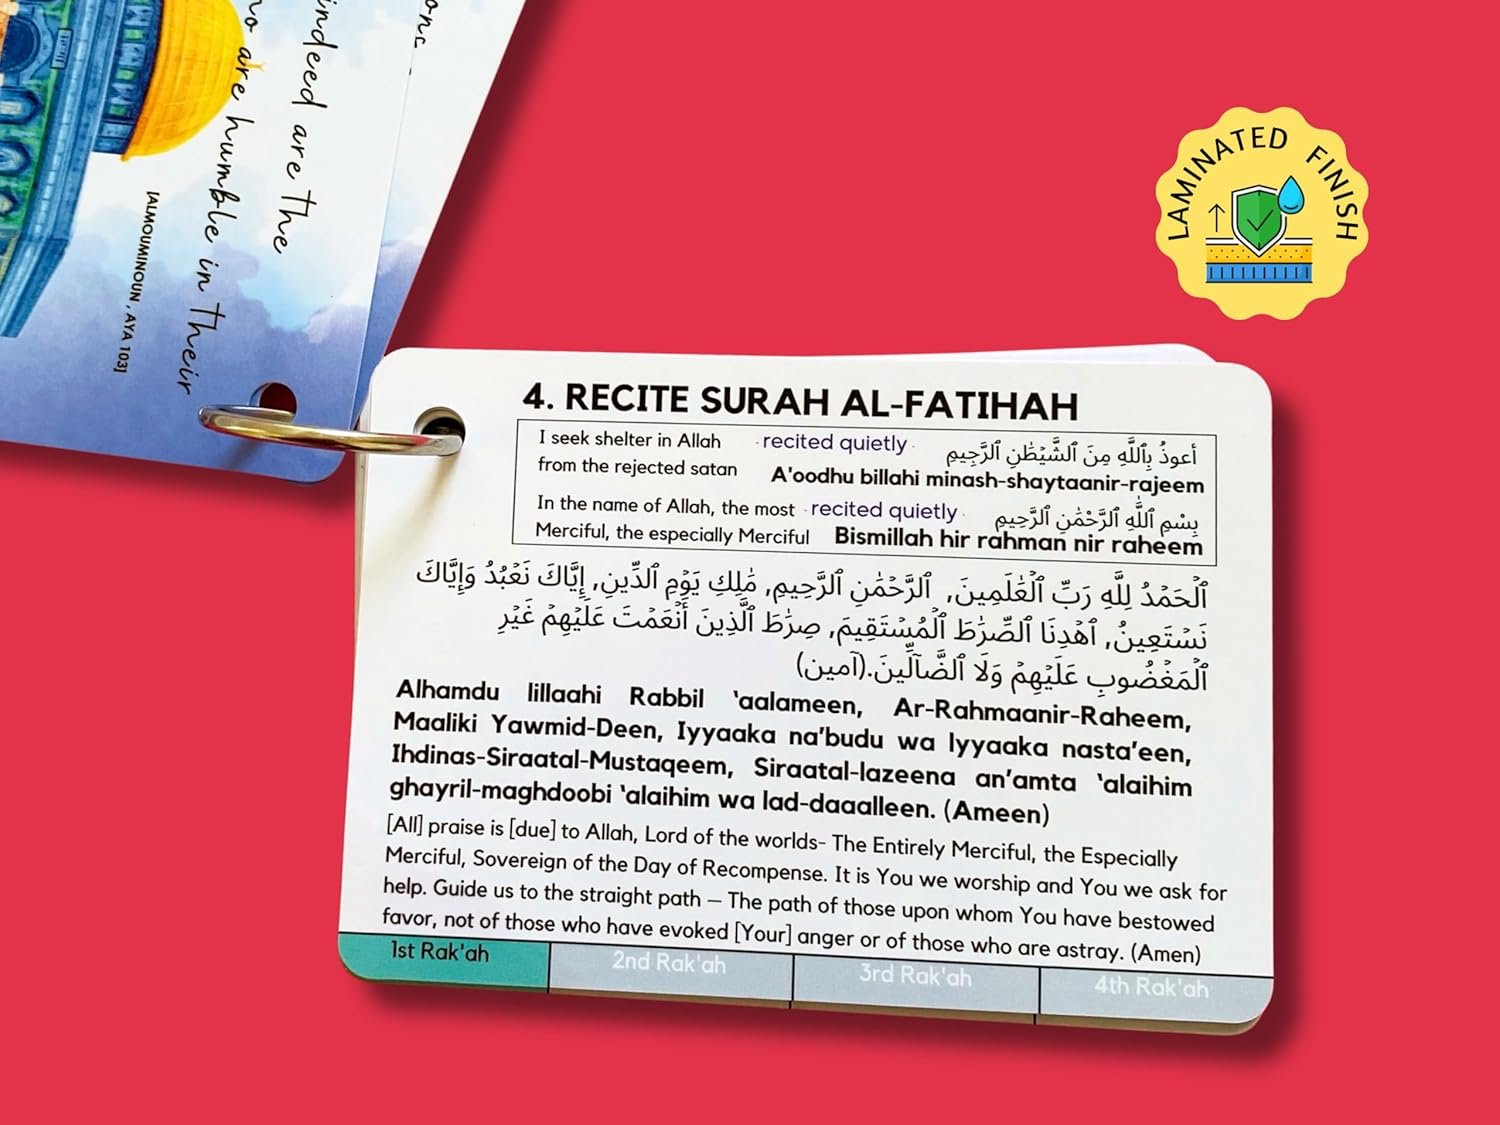 ons
indeed are the
who are humble in their
[ALMOUMINOUN , AYA 103]
LAMINATED FINISH
4. RECITE SURAH AL-FATIHAH
I seek shelter in Allah
from the rejected satan
· recited quietly ·
أعوذُ بِٱللَّهِ مِنَ ٱلشَّيْطَٰنِ ٱلرَّجِيمِ
A'oodhu billahi minash-shaytaanir-rajeem
In the name of Allah, the most
Merciful, the especially Merciful
· recited quietly ·
بِسْمِ ٱللَّهِ ٱلرَّحْمَٰنِ ٱلرَّحِيمِ
Bismillah hir rahman nir raheem
ٱلْحَمْدُ لِلَّهِ رَبِّ ٱلْعَٰلَمِينَ, ٱلرَّحْمَٰنِ ٱلرَّحِيمِ, مَٰلِكِ يَوْمِ ٱلدِّينِ, إِيَّاكَ نَعْبُدُ وَإِيَّاكَ
نَسْتَعِينُ, ٱهْدِنَا ٱلصِّرَٰطَ ٱلْمُسْتَقِيمَ, صِرَٰطَ ٱلَّذِينَ أَنْعَمْتَ عَلَيْهِمْ غَيْرِ
ٱلْمَغْضُوبِ عَلَيْهِمْ وَلَا ٱلضَّآلِّينَ.(آمين)
Alhamdu lillaahi Rabbil ‘aalameen, Ar-Rahmaanir-Raheem,
Maaliki Yawmid-Deen, Iyyaaka na’budu wa lyyaaka nasta’een,
Ihdinas-Siraatal-Mustaqeem, Siraatal-lazeena an’amta ‘alaihim
ghayril-maghdoobi ‘alaihim wa lad-daaalleen. (Ameen)
[All] praise is [due] to Allah, Lord of the worlds- The Entirely Merciful, the Especially
Merciful, Sovereign of the Day of Recompense. It is You we worship and You we ask for
help. Guide us to the straight path – The path of those upon whom You have bestowed
favor, not of those who have evoked [Your] anger or of those who are astray. (Amen)
1st Rak'ah
2nd Rak'ah
3rd Rak'ah
4th Rak'ah